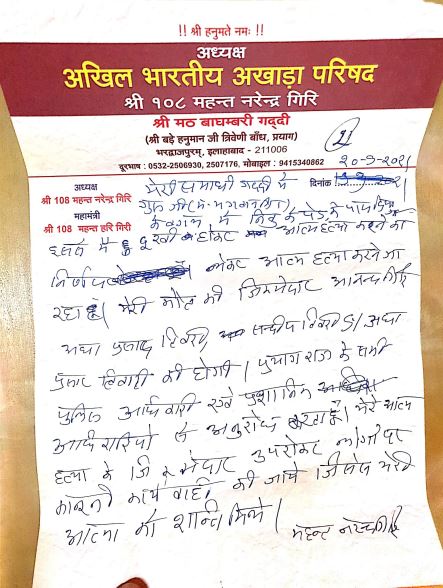 !! श्री हनुमते नमः !!
अध्यक्ष
अखिल भारतीय अखाड़ा परिषद
श्री १०८ महन्त नरेन्द्र गिरि
श्री मठ बाघम्बरी गद्दी
(श्री बड़े हनुमान जी त्रिवेणी बाँध, प्रयाग)
भरद्वाजपुरम्, इलाहाबाद - 211006
दूरभाष : 0532-2506930, 2507176, मोबाइल : 9415340862
11
अध्यक्ष
श्री 108 महन्त नरेन्द्र गिरि
महामंत्री
श्री 108 महन्त हरि गिरी
दिनांक
मेरी समाधी गद्दी में
गुरु जी के बगल में
दुखी होकर आत्म हत्या करने का
निर्णय लेकर आत्म हत्या करने जा
रहा हूँ। मेरी मौत की जिम्मेदार आनन्द गिरि
अद्या प्रसाद तिवारी सन्दीप तिवारी S/ अद्या
प्रसाद तिवारी की होगी। प्रयागराज के सभी
पुलिस अधिकारी एवं प्रशासनिक
अधिकारियों से अनुरोध करता हूँ। मेरे आत्म
हत्या के जिम्मेदार उपरोक्त लोगों पर
कानूनी कार्यवाही की जाये। जिससे मेरी
आत्मा को शान्ति मिले।
महन्त नरेन्द्र गिरि